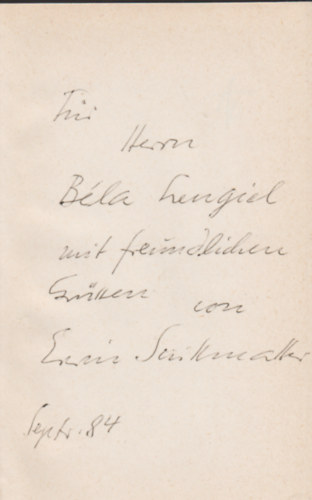 Für
Herrn
Béla Lengiel
mit freundlichen
Grüßen
von
Erwin Strittmatter
Septr. 84